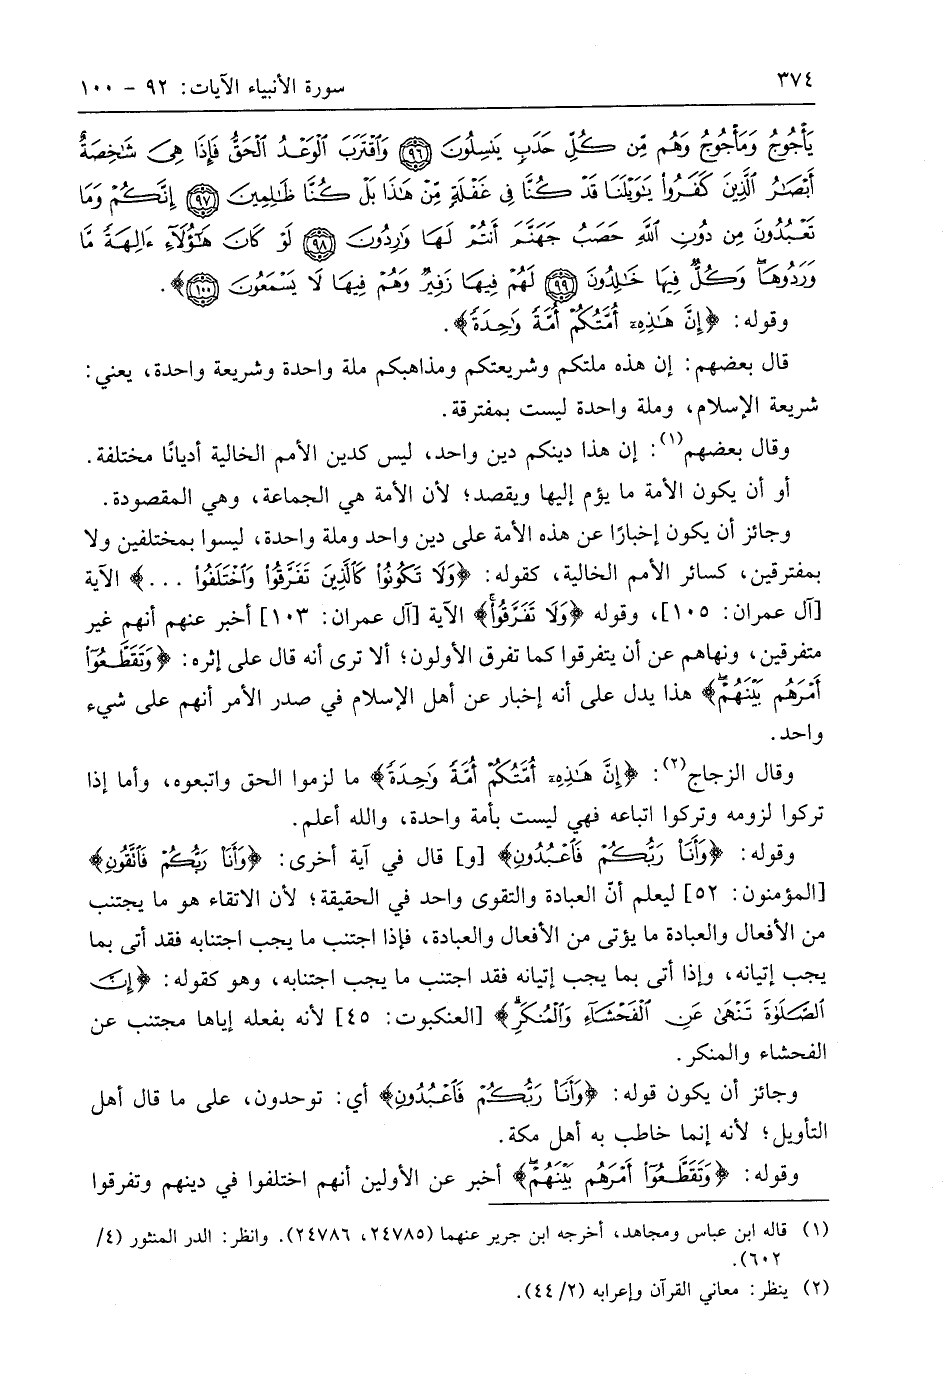 ٣٧٤
سورة الأنبياء الآيات: ٩٢ - ١٠٠
يَأْجُوجُ وَمَأْجُوجُ وَهُم مِّن كُلِّ حَدَبٍ يَنسِلُونَ ﴿٩٦﴾ وَٱقْتَرَبَ ٱلْوَعْدُ ٱلْحَقُّ فَإِذَا هِىَ شَٰخِصَةٌ
أَبْصَٰرُ ٱلَّذِينَ كَفَرُوا۟ يَٰوَيْلَنَا قَدْ كُنَّا فِى غَفْلَةٍ مِّنْ هَٰذَا بَلْ كُنَّا ظَٰلِمِينَ ﴿٩٧﴾ إِنَّكُمْ وَمَا
تَعْبُدُونَ مِن دُونِ ٱللَّهِ حَصَبُ جَهَنَّمَ أَنتُمْ لَهَا وَٰرِدُونَ ﴿٩٨﴾ لَوْ كَانَ هَٰٓؤُلَآءِ ءَالِهَةً مَّا
وَرَدُوهَا ۖ وَكُلٌّ فِيهَا خَٰلِدُونَ ﴿٩٩﴾ لَهُمْ فِيهَا زَفِيرٌ وَهُمْ فِيهَا لَا يَسْمَعُونَ ﴿١٠٠﴾﴾.
وقوله: ﴿إِنَّ هَٰذِهِۦٓ أُمَّتُكُمْ أُمَّةً وَٰحِدَةً﴾.
قال بعضهم: إن هذه ملتكم وشريعتكم ومذاهبكم ملة واحدة وشريعة واحدة، يعني:
شريعة الإسلام، وملة واحدة ليست بمفترقة.
وقال بعضهم(١): إن هذا دينكم دين واحد، ليس كدين الأمم الخالية أديانًا مختلفة.
أو أن يكون الأمة ما يؤم إليها ويقصد؛ لأن الأمة هي الجماعة، وهي المقصودة.
وجائز أن يكون إخبارًا عن هذه الأمة على دين واحد وملة واحدة، ليسوا بمختلفين ولا
بمفترقين، كسائر الأمم الخالية، كقوله: ﴿وَلَا تَكُونُوا۟ كَٱلَّذِينَ تَفَرَّقُوا۟ وَٱخْتَلَفُوا۟ ...﴾ الآية
[آل عمران: ١٠٥]، وقوله ﴿وَلَا تَفَرَّقُوا۟ۚ﴾ الآية [آل عمران: ١٠٣] أخبر عنهم أنهم غير
متفرقين، ونهاهم عن أن يتفرقوا كما تفرق الأولون؛ ألا ترى أنه قال على إثره: ﴿وَتَقَطَّعُوٓا۟
أَمْرَهُم بَيْنَهُمْۖ﴾ هذا يدل على أنه إخبار عن أهل الإسلام في صدر الأمر أنهم على شيء
واحد.
وقال الزجاج(٢): ﴿إِنَّ هَٰذِهِۦٓ أُمَّتُكُمْ أُمَّةً وَٰحِدَةً﴾ ما لزموا الحق واتبعوه، وأما إذا
تركوا لزومه وتركوا اتباعه فهي ليست بأمة واحدة، والله أعلم.
وقوله: ﴿وَأَنَا۠ رَبُّكُمْ فَٱعْبُدُونِ﴾ [و] قال في آية أخرى: ﴿وَأَنَا۠ رَبُّكُمْ فَٱتَّقُونِ﴾
[المؤمنون: ٥٢] ليعلم أنّ العبادة والتقوى واحد في الحقيقة؛ لأن الاتقاء هو ما يجتنب
من الأفعال والعبادة ما يؤتى من الأفعال والعبادة، فإذا اجتنب ما يجب اجتنابه فقد أتى بما
يجب إتيانه، وإذا أتى بما يجب إتيانه فقد اجتنب ما يجب اجتنابه، وهو كقوله: ﴿إِنَّ
ٱلصَّلَوٰةَ تَنْهَىٰ عَنِ ٱلْفَحْشَآءِ وَٱلْمُنكَرِۗ﴾ [العنكبوت: ٤٥] لأنه بفعله إياها مجتنب عن
الفحشاء والمنكر.
وجائز أن يكون قوله: ﴿وَأَنَا۠ رَبُّكُمْ فَٱعْبُدُونِ﴾ أي: توحدون، على ما قال أهل
التأويل؛ لأنه إنما خاطب به أهل مكة.
وقوله: ﴿وَتَقَطَّعُوٓا۟ أَمْرَهُم بَيْنَهُمْۖ﴾ أخبر عن الأولين أنهم اختلفوا في دينهم وتفرقوا
(١) قاله ابن عباس ومجاهد، أخرجه ابن جرير عنهما (٢٤٧٨٥، ٢٤٧٨٦). وانظر: الدر المنثور (٤/
٦٠٢).
(٢) ينظر: معاني القرآن وإعرابه (٢/ ٤٤).